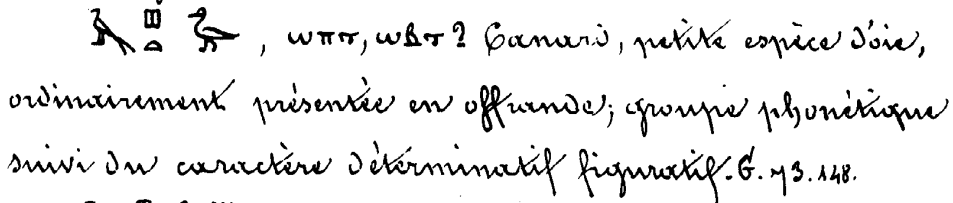 𓊪𓏏𓅬, ⲱⲡⲧ, ⲱⲃⲧ? Canard, petite espèce d'oie,
ordinairement présentée en offrande; groupe phonétique
suivi du caractère déterminatif figuratif. G. 73. 148.